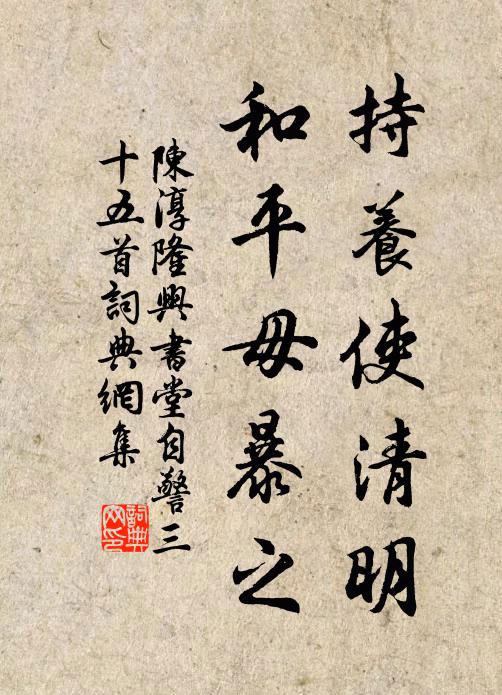 持養使清明
和平毋暴之
陳淳隆興書堂自警三
十五首詞典網集
詞典網印